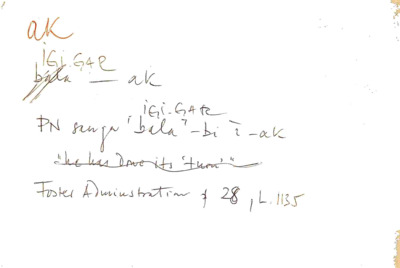 ak
IGI.GAR
bala — ak
IGI.GAR
PN sanga "bala"-bi ì-ak
"he has done its 'turn'"
Foster Administration # 28, L. 1135